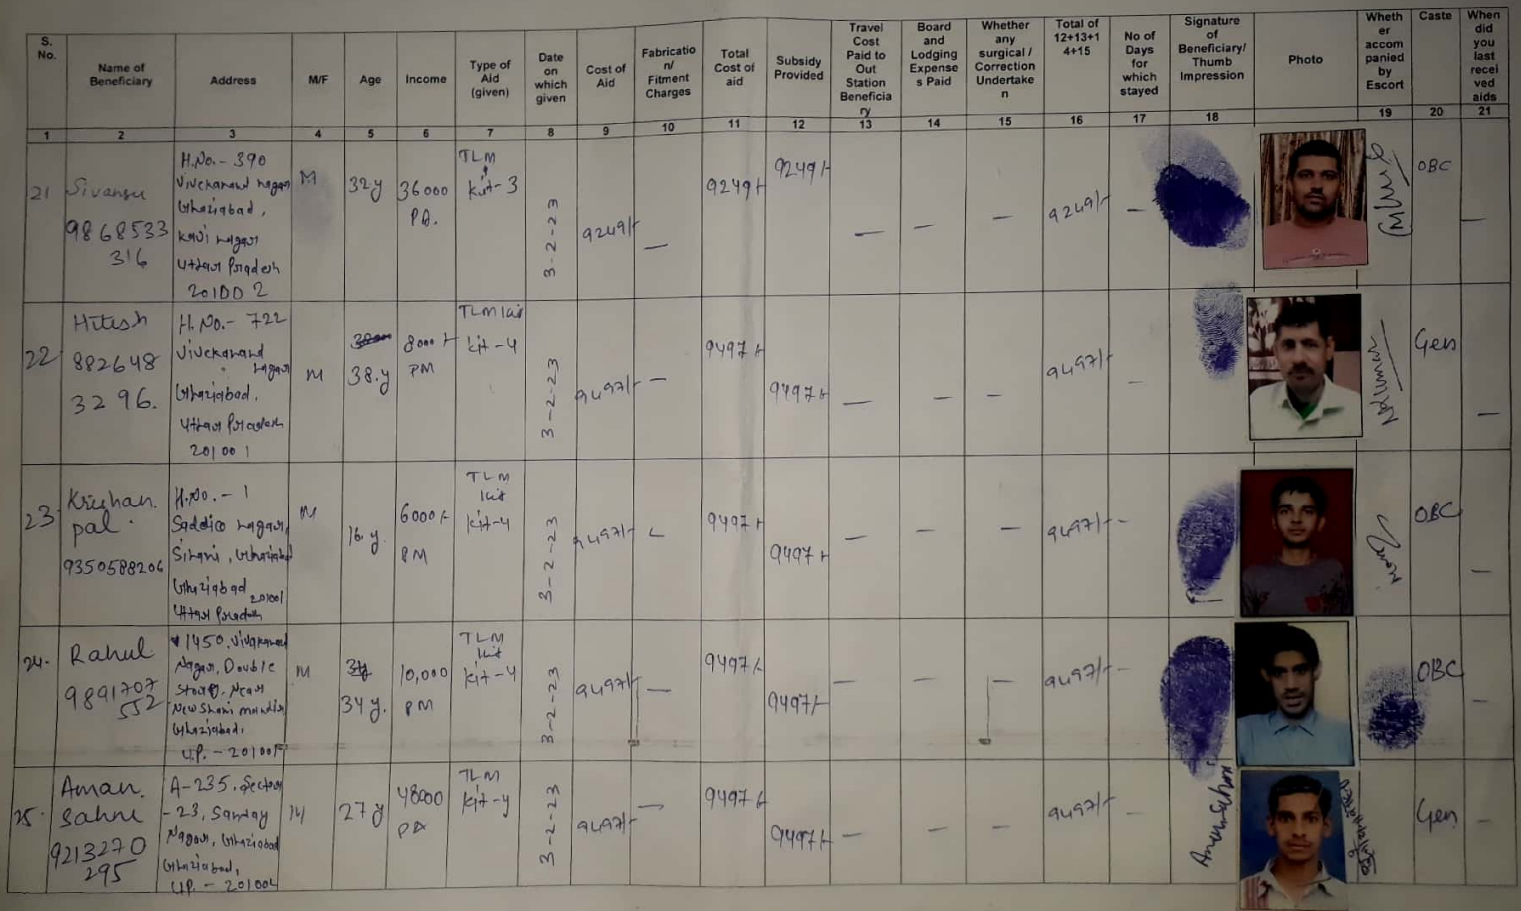 S. No.
Name of Beneficiary
Address
M/F
Age
Income
Type of Aid (given)
Date on which given
Cost of Aid
Fabricatio n/ Fitment Charges
Total Cost of aid
Subsidy Provided
Travel Cost Paid to Out Station Beneficia ry
Board and Lodging Expense s Paid
Whether any surgical / Correction Undertake n
Total of 12+13+1 4+15
No of Days for which stayed
Signature of Beneficiary/ Thumb Impression
Photo
Wheth er accom panied by Escort
Caste
When did you last recei ved aids
1 2 3 4 5 6 7 8 9 10 11 12 13 14 15 16 17 18 19 20 21
21
Sivansu
9868533
316
H.No.- 390
Vivekanand nagar
Ghaziabad,
Kavi nagar
Uttar Pradesh
201002
M
32y
36000
PA.
TLM
kit-3
3-2-23
9249/-
—
9249/-
9249/-
—
—
—
9249/-
—
OBC
—
22
Hitesh
882648
3296.
H.No.- 722
Vivekanand
nagar
Ghaziabad,
Uttar Pradesh
201001
M
38.y
8000/-
PM
TLM kit
kit-4
3-2-23
9497/-
—
9497/-
9497/-
—
—
—
9497/-
—
Gen
—
23
Krishan.
pal.
9350588206
H.No.- 1
Saddiq nagar,
Sihani, Ghaziabad
Ghaziabad 201001
Uttar Pradesh
M
16.y.
6000/-
PM
TLM
kit
kit-4
3-2-23
9497/-
—
9497/-
9497/-
—
—
—
9497/-
—
OBC
—
24.
Rahul
9891707
552
1450. Vivekanand
Nagar, Double
Storey, Near
New Shani mandir,
Ghaziabad,
U.P. - 201001
M
34y.
10,000
PM
TLM
kit
kit-4
3-2-23
9497/-
—
9497/-
9497/-
—
—
—
9497/-
—
OBC
—
25.
Aman.
Sahni
9213270
295
A-235, Sector
-23, Sanjay
Nagar, Ghaziabad
Ghaziabad,
U.P. - 201002
M
27y
48000
PA
TLM
kit-4
3-2-23
9497/-
—
9497/-
9497/-
—
—
—
9497/-
—
Gen
—